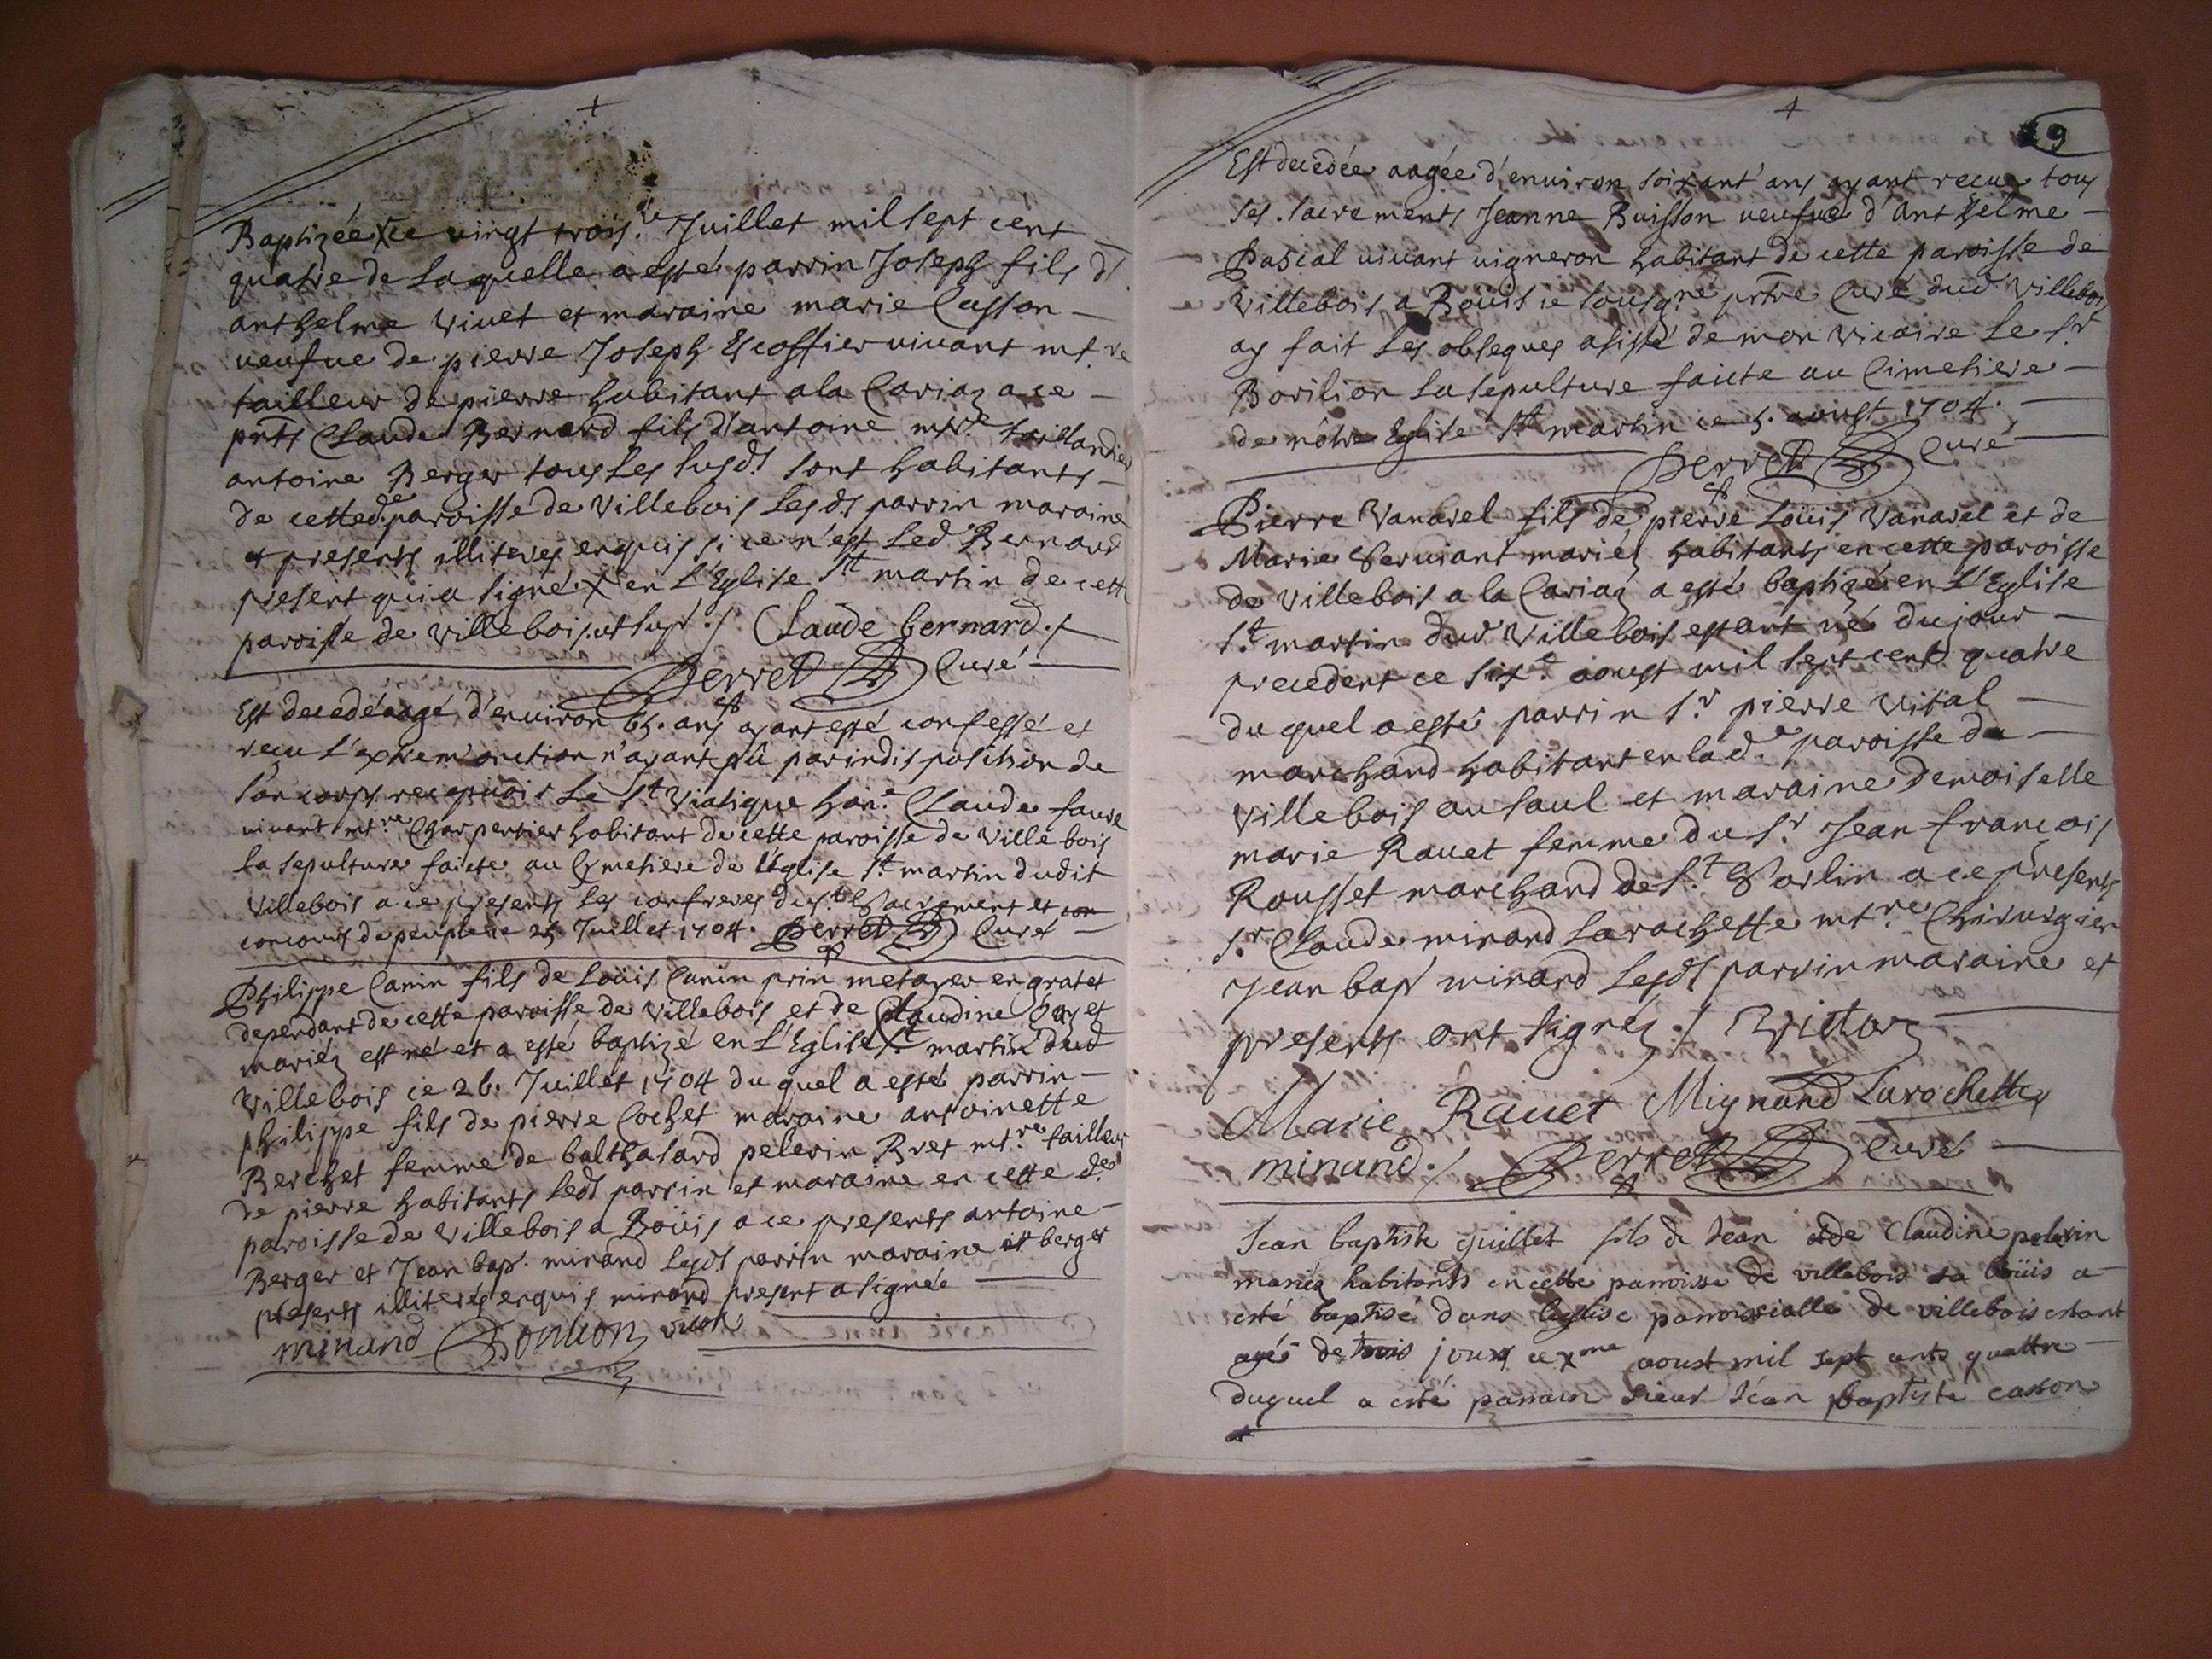 Baptizée X ce vingt trois.e Juillet mil sept cent
quatre de laquelle a esté parrin Joseph fils d'
anthelme vivet et maraine marie Casson
veufve de pierre Joseph Escoffier vivant mt.re
tailleur de pierre habitant a la Cariaz a ce
pnts Claude Bernard fils d'antoine mtre taillandier
antoine Berger tous les susd.s sont habitants
de cetted.e paroisse de Villebois lesd.s parrin maraine
et presents illiteres enquis si ce n'est led. Bernard
present qui a signé X en L'Eglise St martin de cette
paroisse de villebois. ut sup. / Claude bernard. /
Perret Curé
Est decedé aagé d'environ 65. ans ayant esté confessé et
reçu l'extrem'onction n'ayant pû par indisposition de
son corps recepvoir le St Viatique hon.e Claude faure
vivant mt.re Charpentier habitant de cette paroisse de Ville bois
la sepulture faicte au Cymetiere de l'église St martin dudit
villebois a ce presents les confreres du St. Sacrement et con
concours de peuple ce 25 Juillet 1704. Perret Curé
Philippe Canin fils de Loüis Canin prin metayer en gratet
dependant de cette paroisse de Villebois et de Claudine
mariéz est né et a esté baptizé en L'Eglise St martin dud
Villebois ce 26. Juillet 1704 du quel a esté parrin
philippe fils de pierre Cochet maraine antoinette
Berchet femme de balthasard pelerin Bret mt.re tailleur
de pierre habitants lesd.s parrin et maraine en cette d.e
paroisse de Villebois a Boüis a ce presents antoine
Berger et Jean bap. minand lesd.s parrin maraine et berger
presents illiterés enquis minand present a signée
minand Borilion vicare
9
Est decedée aagée d'environ soixant' ans ayant recue tous
ses. sacrements Jeanne Buisson veufve d'Anthelme
Pascal vivant vigneron habitant de cette paroisse de
Villebois a Boüis ie sousgné prtre Curé dud Villebois
ay fait les obseques assisté de mon vicaire le Sr
Borilion la sepulture faicte au Cimetiere
de nôtre Eglise St martin ce 5. aoust 1704.
Perret Curé
Pierre Vanarel fils de pierre Loüis Vanarel et de
Marie Serviant mariéz habitants en cette paroisse
de villebois a la Cariaz a esté baptizé en L'Eglise
St martin dud Villebois estant né du jour
precedent ce six.e aoust mil sept cent quatre
du quel a esté parrin Sr pierre Vital
marchand habitant en lad.e paroisse de
Villebois au Saul et maraine Demoiselle
marie Ravet femme du Sr Jean françois
Rousset marchand de St. Sorlin a ce presents
Sr. Claude minand Larochette mt.re Chirurgien
Jean bap minand lesd.s parrin maraine et
presents ont signéz. / Victor
Marie Ravet Mignand Larochette
minand. / Perret Curé
Jean baptiste guillet fils de Jean et de Claudine pelerin
mariéz habitants en cette parroisse de villebois a boüis a
esté baptisé dans l'eglise parroissialle de villebois estant
agé de trois jours ce xme aoust mil sept cents quattre
duquel a esté parrain sieur Jean baptiste casson